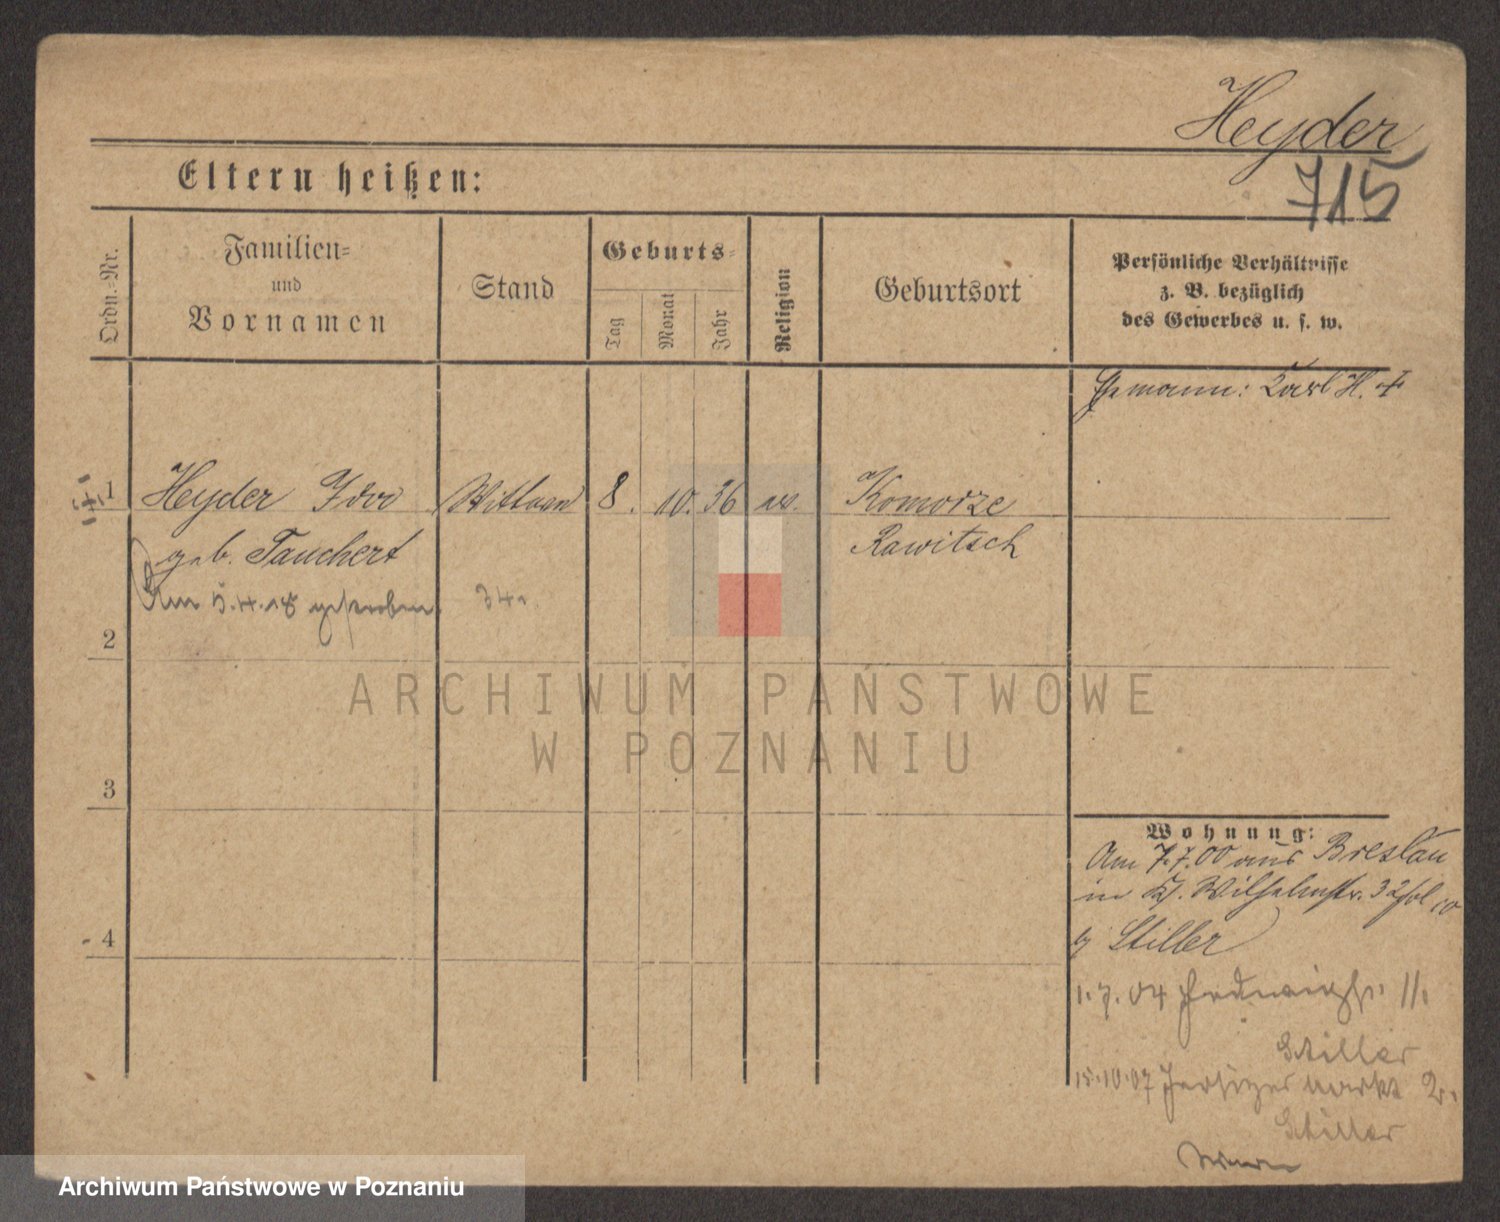 Heyder
715
Eltern heißen:
Ordn.-Nr.
Familien-
und
Vornamen
Stand
Geburts-
Tag
Monat
Jahr
Religion
Geburtsort
Persönliche Verhältnisse
z. B. bezüglich
des Gewerbes u. s. w.
Ehemann: Karl H. +
1 Heyder Witwe 8. 10. 36 ev. Komorze
geb. Tauchert Rawitsch
Am 5.4.18 gestorben.
2
3
4
Wohnung:
Am 7.7.00 aus Breslau
in Wilhelmstr. 32
Stiller
1.7.04 Hedwigstr. 11.
Stiller
15.10.07 Jersitzer markt 2.
Stiller
ARCHIWUM PAŃSTWOWE
W POZNANIU
Archiwum Państwowe w Poznaniu